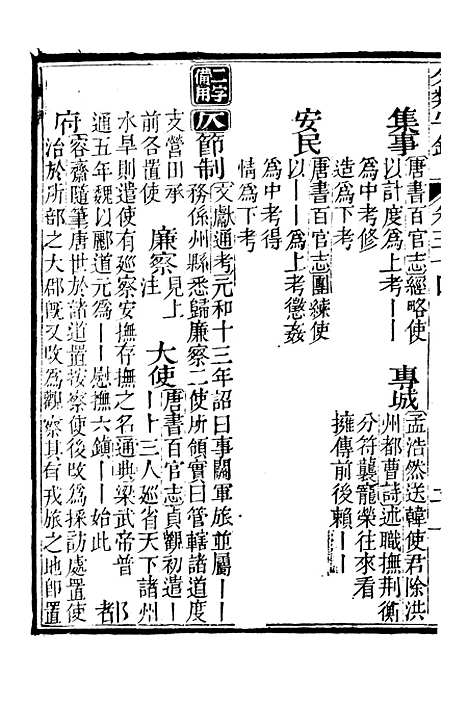 集事 唐書百官志經略使
以計度爲上考——
爲中考修
造爲下考
專城 孟浩然送韓使君除洪
州都曹詩述職撫荆衡
分符襲寵榮往來看
擁傳前後賴——
安民 唐書百官志團練使
以——爲上考懲姦
爲中考
情爲下考
二字備用
仄 節制 文獻通考元和十三年詔曰事關軍旅並屬——
務係州縣悉歸廉察二使所領實曰管轄諸道度
支營田承
前各置使
廉察 見上
注
大使 唐書百官志貞觀初遣——
十三人巡省天下諸州
水旱則遣使有巡察安撫存撫之名通典梁武帝普
通五年魏以酈道元爲——慰撫六鎮——始此
都
府 容齋隨筆唐世於諸道置按察使後改爲採訪處置使
治於所部之大郡既又改爲觀察其有戎旅之地卽置